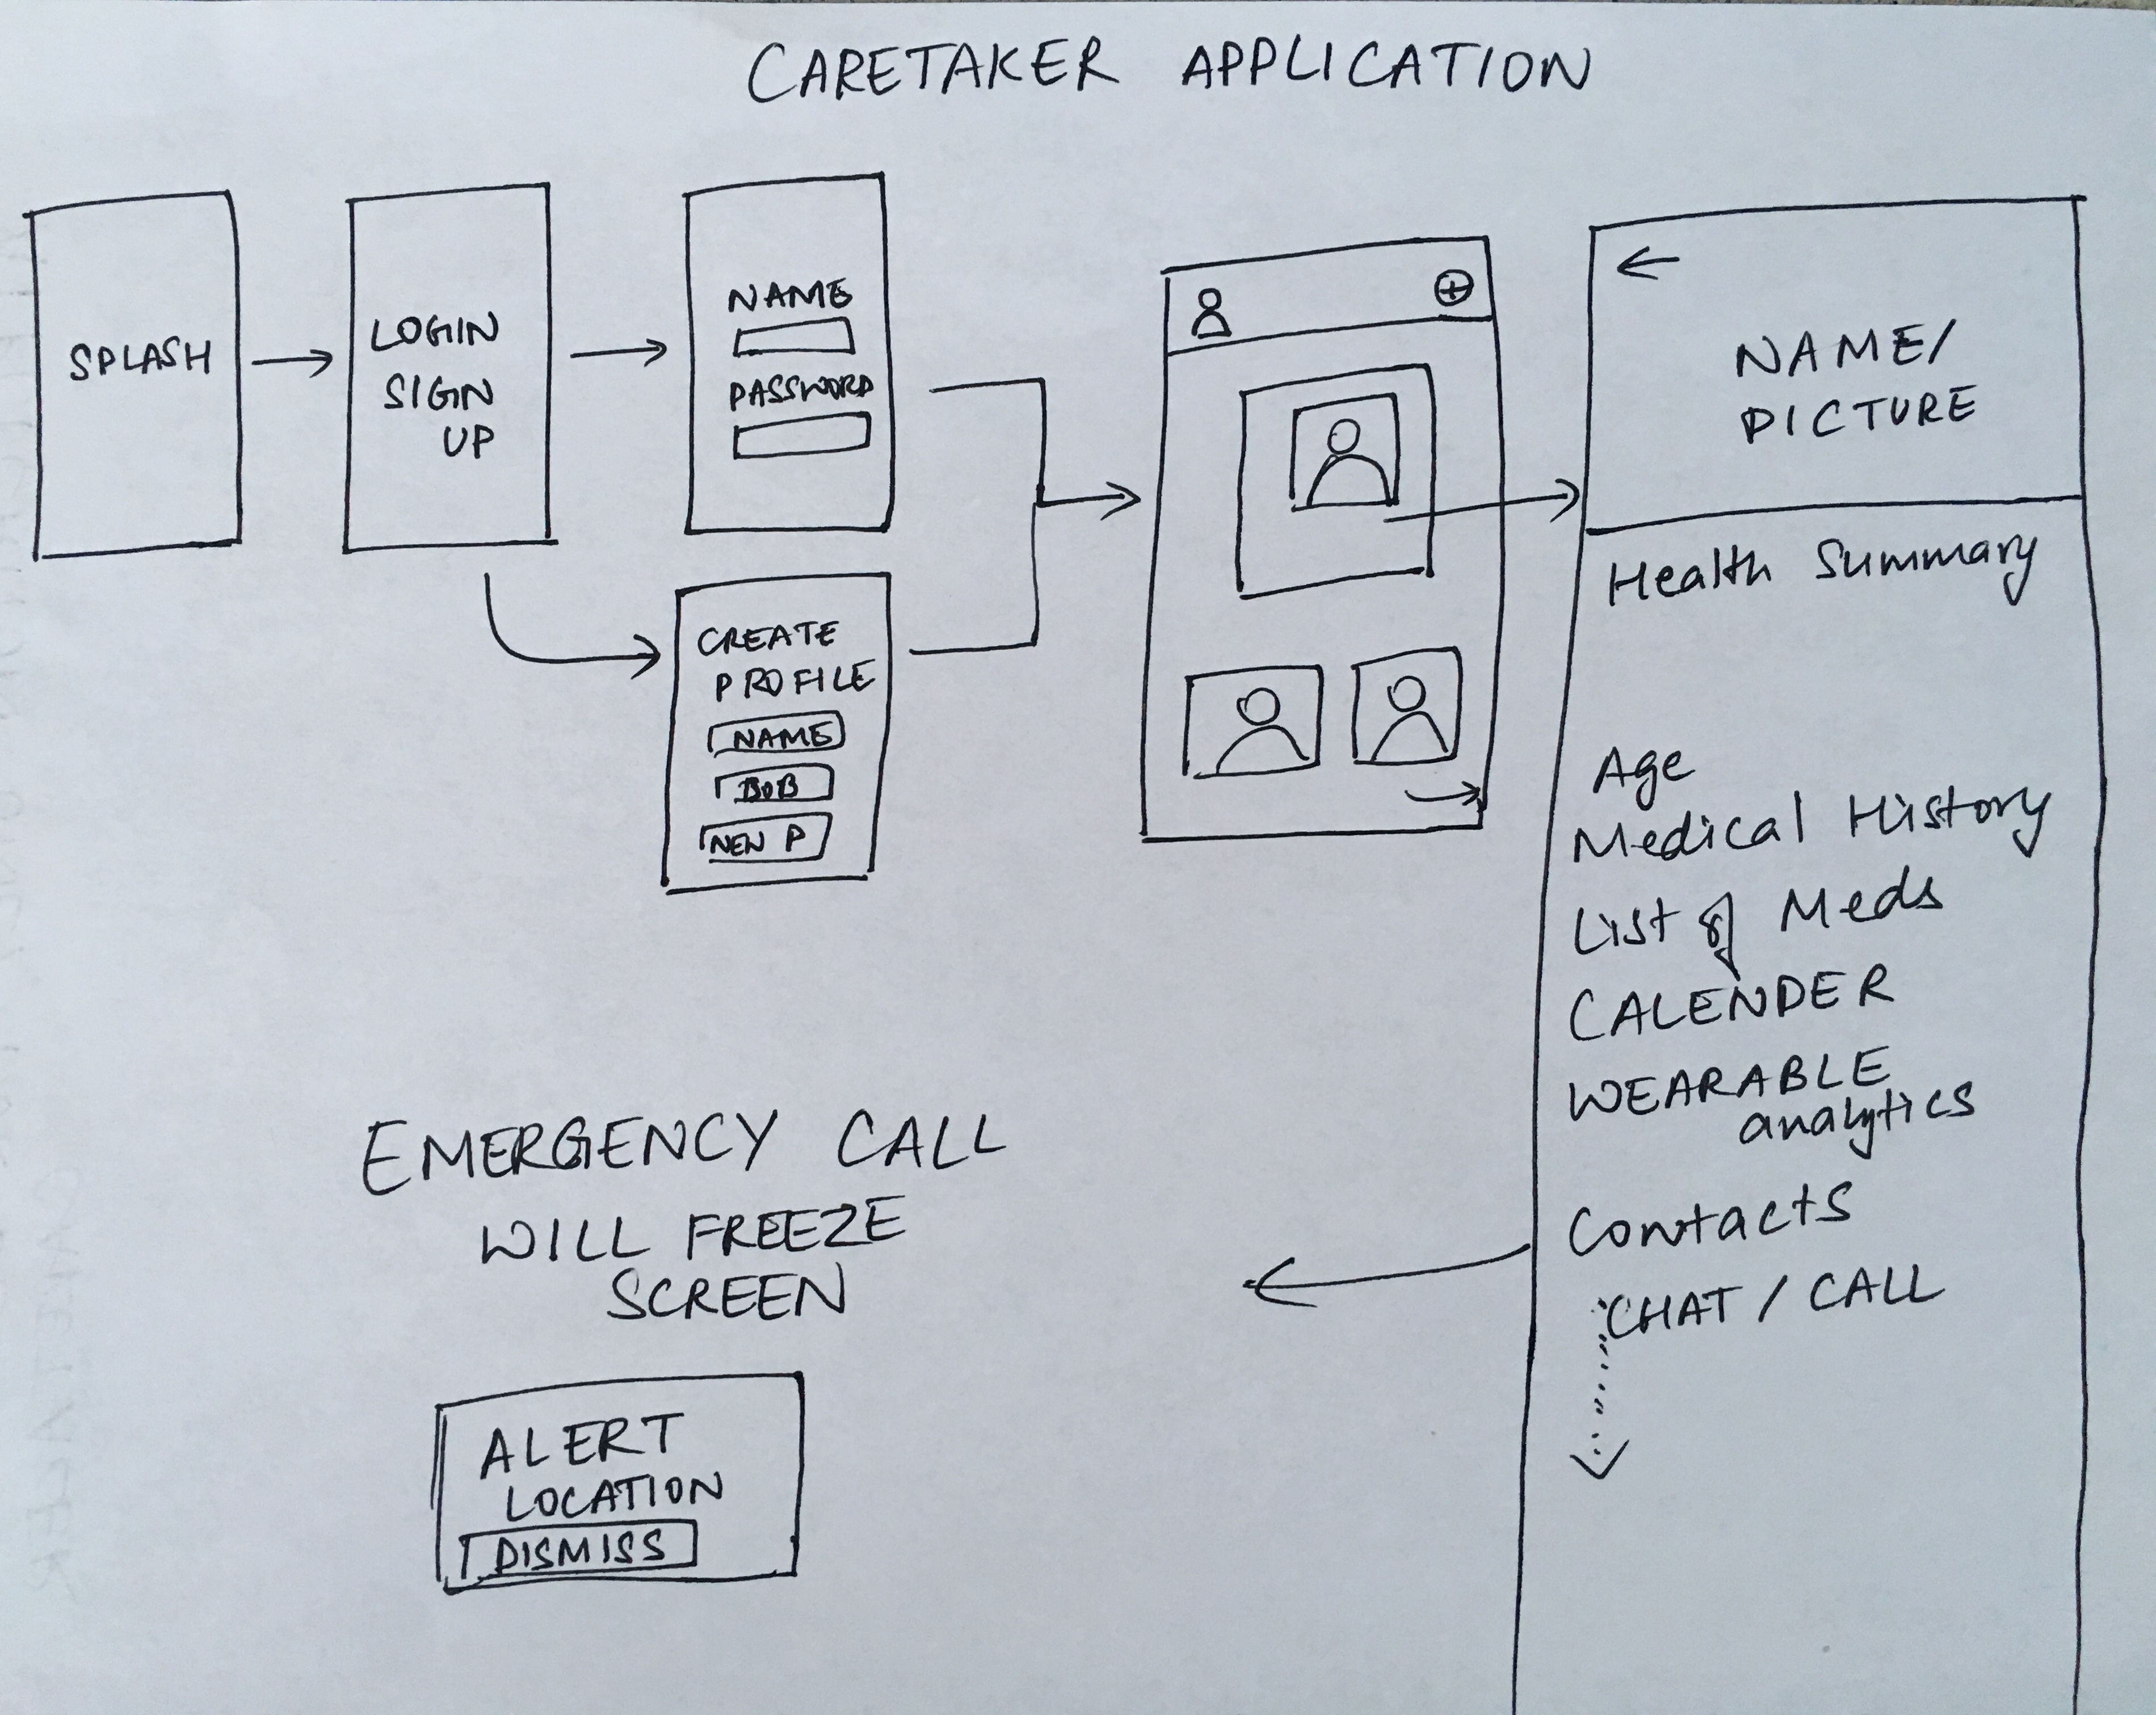 CARETAKER APPLICATION
SPLASH
LOGIN
SIGN
UP
NAME
PASSWORD
CREATE
PROFILE
NAME
BOB
NEW P
NAME/
PICTURE
Health Summary
Age
Medical History
List of Meds
CALENDER
WEARABLE
analytics
Contacts
CHAT / CALL
EMERGENCY CALL
WILL FREEZE
SCREEN
ALERT
LOCATION
DISMISS